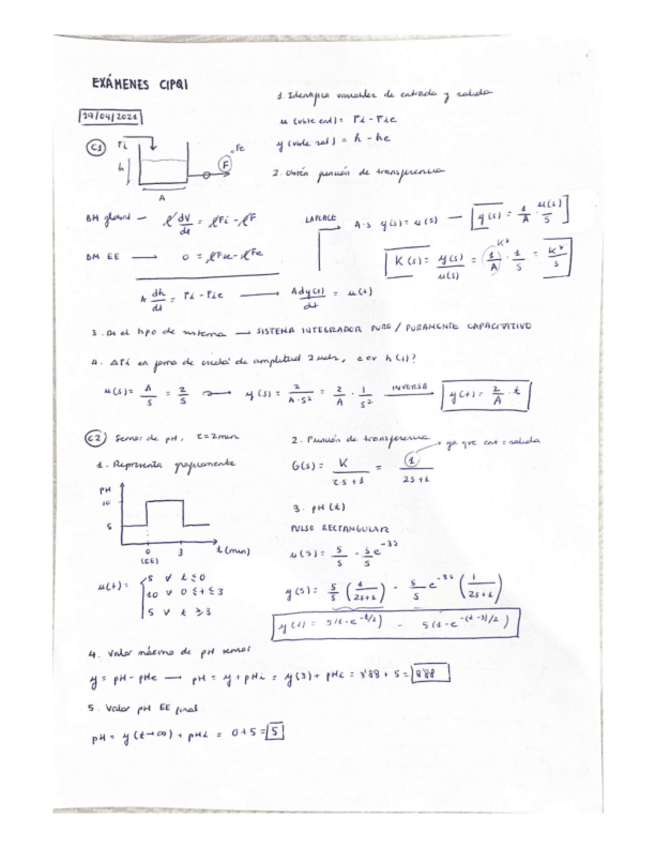 EXÁMENES CIPQI
29/04/2021
C1
Fi
h
F
Fe
A
1. Identifica variables de entrada y salida
u (vble ent) = Fi - Fie
y (vble sal) = h - he
2. Obtén función de transferencia
BM global — ρ dV/dt = ρFi - ρF
BM EE → 0 = ρFie - ρFe
A dh/dt = Fi - Fie → A dy(t)/dt = u(t)
LAPLACE
A·s y(s) = u(s) — y(s) = 1/A · u(s)/s
K(s) = y(s)/u(s) = 1/A · 1/s = K*/s
K*
3. Di el tipo de sistema → SISTEMA INTEGRADOR PURO / PURAMENTE CAPACITATIVO
4. ΔFi en forma de escalón de amplitud 2 uds, h(t)?
u(s) = A/s = 2/s → y(s) = 2/A·s² = 2/A · 1/s² INVERSA → y(t) = 2/A · t
C2 Sensor de pH, τ = 2 min
1. Representa graficamente
PH
10
5
0
3
t (min)
(EE)
u(t) = { 5 ∀ t ≤ 0
10 ∀ 0 ≤ t ≤ 3
5 ∀ t ≥ 3
2. Función de transferencia → ya que ent = salida
G(s) = K/τs+1 = 1/2s+1
3. pH (t)
PULSO RECTANGULAR
u(s) = 5/s - 5/s e^-3s
y(s) = 5/s (1/2s+1) - 5/s e^-3s (1/2s+1)
y(t) = 5(1-e^-t/2) - 5(1-e^-(t-3)/2)
4. Valor máximo de pH sensor
y = pH - pHe → pH = y + pHi = y(3) + pHi = 3'88 + 5 = 8'88
5. Valor pH EE final
pH = y (t→∞) + pHi = 0 + 5 = 5